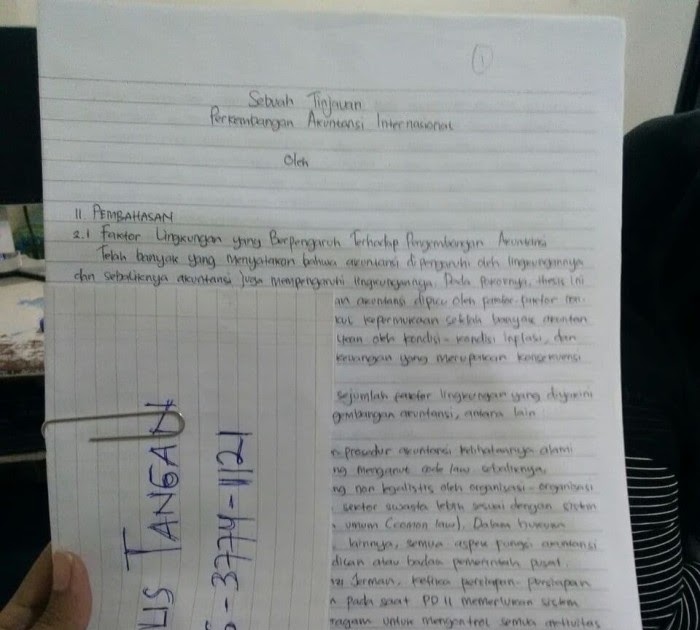 1
Sebuah Tinjauan
Perkembangan Akuntansi Internasional
Oleh
II. PEMBAHASAN
2.1 Faktor Lingkungan yang Berpengaruh Terhadap Pengembangan Akuntansi
Telah banyak yang menyatakan bahwa akuntansi dipengaruhi oleh lingkungannya
dan sebaliknya akuntansi juga mempengaruhi lingkungannya. Pada pokoknya, thesis ini
an akuntansi dipicu oleh faktor-faktor
kul kepermukaan setelah banyak akuntan
oleh kondisi-kondisi inflasi, dan
keuangan yang merupakan konsekuensi
sejumlah faktor lingkungan yang diyakini
gembangan akuntansi, antara lain
n prosedur akuntansi kelihatannya alami
ng menganut code law. sebaliknya,
ng non legalistis oleh organisasi-organisasi
sektor swasta lebih sesuai dengan sistim
umum (common law). Dalam hukum
lainnya, semua aspek fungsi akuntansi
dikan atau badan pemerintah pusat
zi Jerman, ketika persiapan-persiapan
n pada saat PD II memerlukan sistem
ragam untuk mengontrol semua aktivitas
LIS TANGAN
6-3774-1121